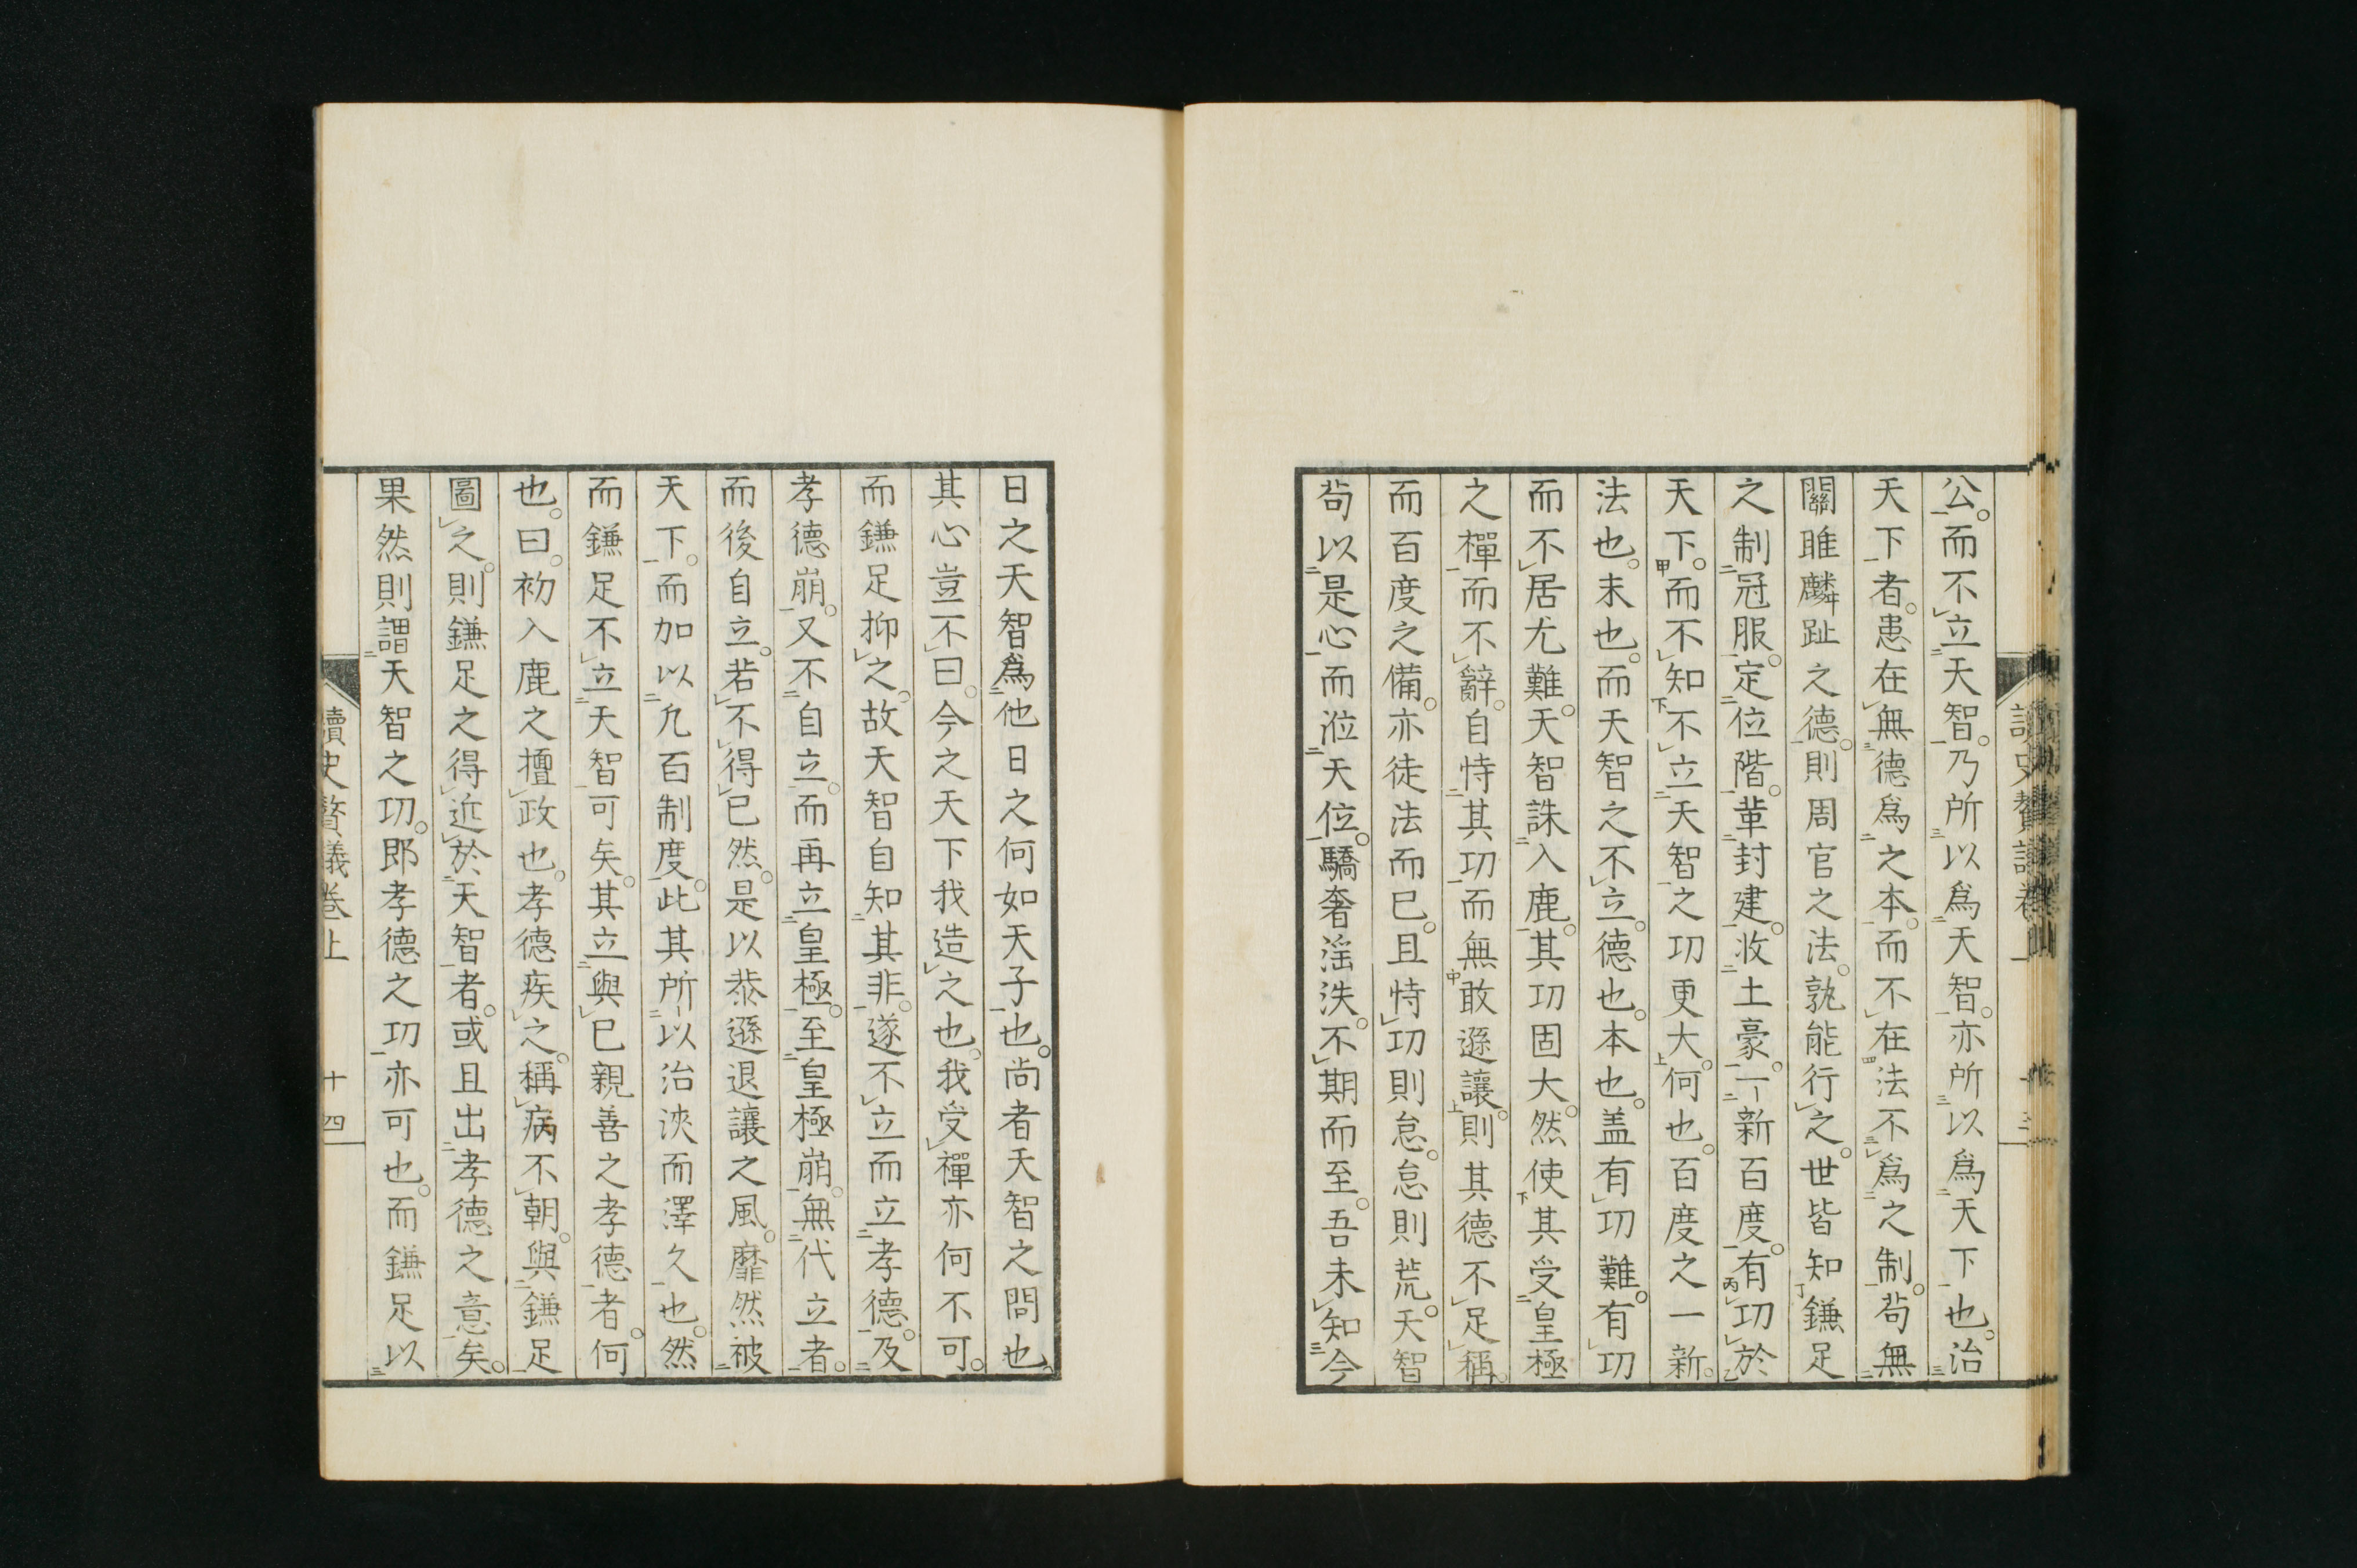 公。而不立天智。乃所以爲天智。亦所以爲天下也。治
天下者。患在無德爲之本。而不在法不爲之制。苟無
關雎麟趾之德。則周官之法。孰能行之。世皆知鎌足
之制冠服。定位階。革封建。收土豪。一新百度。有功於
天下。而不知不立天智之功更大。何也。百度之一新。
法也。末也。而天智之不立。德也。本也。盖有功難。有功
而不居尤難。天智誅入鹿。其功固大。然使其受皇極
之禪而不辭。自恃其功而無敢遜讓。則其德不足稱。
而百度之備。亦徒法而已。且恃功則怠。怠則荒。天智
苟以是心而涖天位。驕奢淫泆。不期而至。吾未知今
日之天智爲他日之何如天子也。尚者天智之問也。
其心豈不曰。今之天下我造之也。我受禪亦何不可。
而鎌足抑之。故天智自知其非。遂不立而立孝德。及
孝德崩。又不自立。而再立皇極。至皇極崩。無代立者。
而後自立。若不得已然。是以恭遜退讓之風。靡然被
天下。而加以凢百制度。此其所以治浹而澤久也。然
而鎌足不立天智可矣。其立與已親善之孝德者。何
也。曰。初入鹿之擅政也。孝德疾之。稱病不朝。與鎌足
圖之。則鎌足之得近於天智者。或且出孝德之意矣。
果然則謂天智之功。即孝德之功亦可也。而鎌足以
讀史贅議卷上
十四